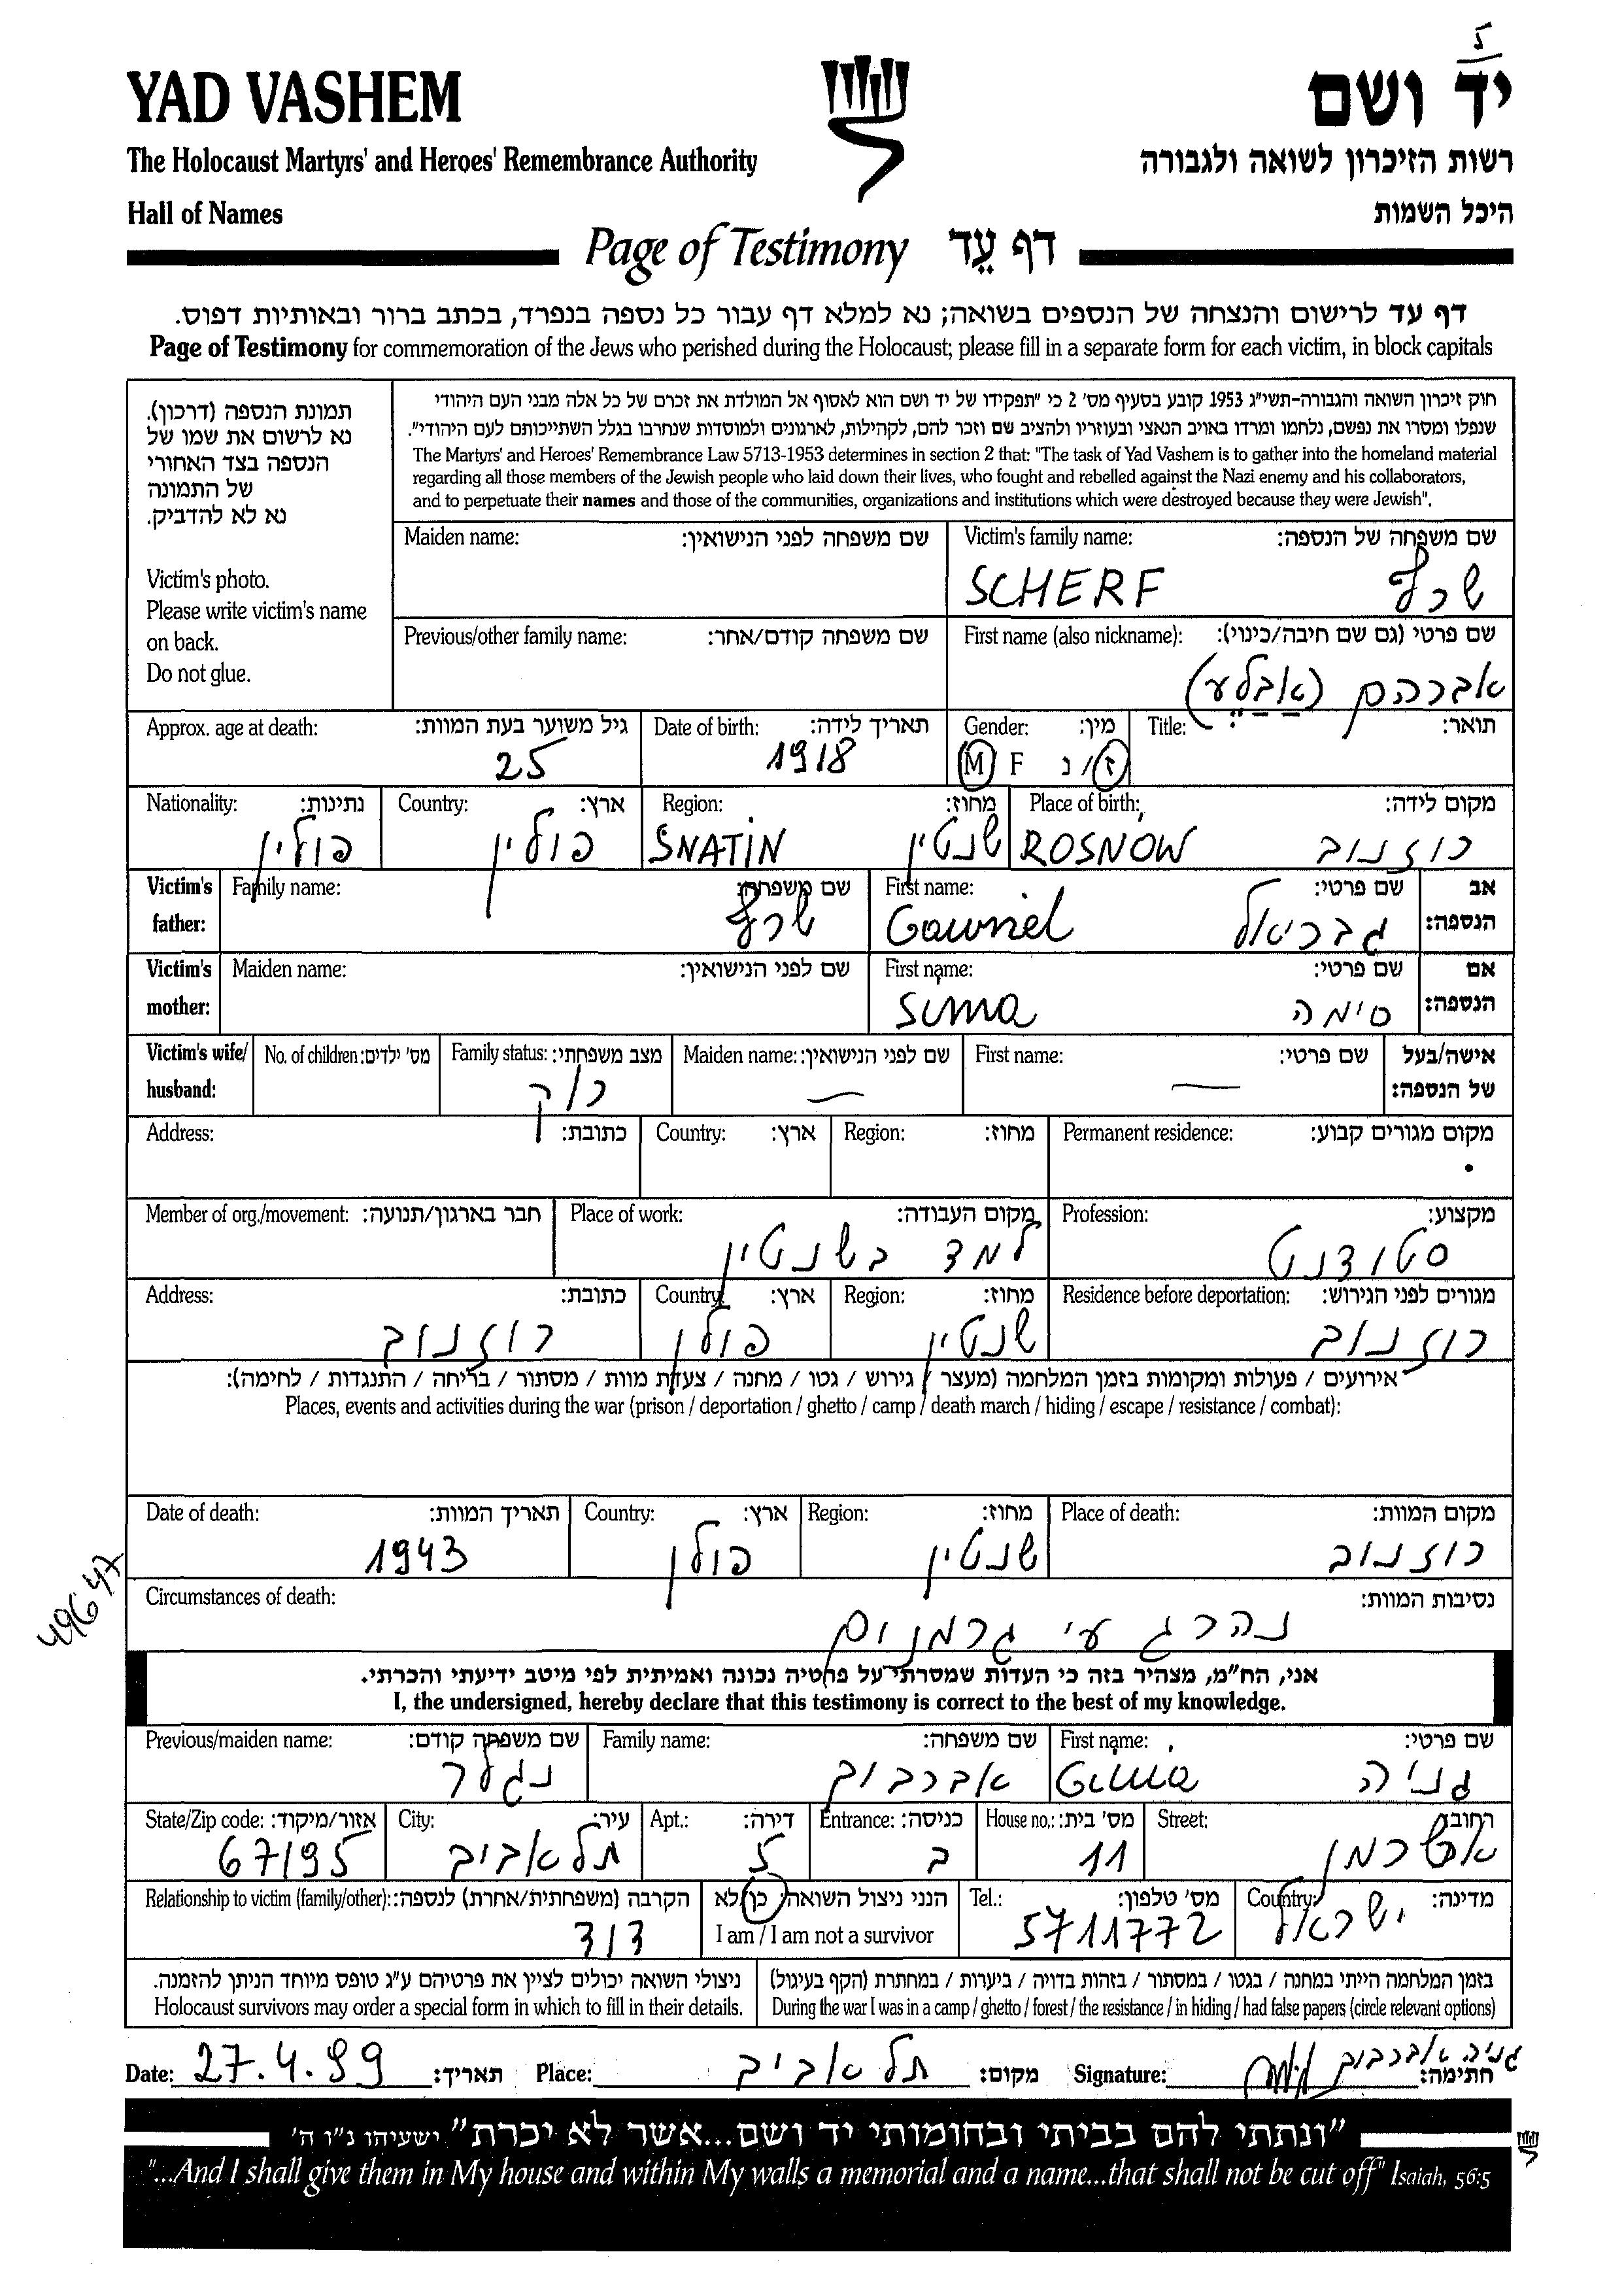 5
YAD VASHEM יד ושם
The Holocaust Martyrs' and Heroes' Remembrance Authority רשות הזיכרון לשואה ולגבורה
Hall of Names היכל השמות
Page of Testimony דף עֵד
דף עד לרישום והנצחה של הנספים בשואה; נא למלא דף עבור כל נספה בנפרד, בכתב ברור ובאותיות דפוס.
Page of Testimony for commemoration of the Jews who perished during the Holocaust; please fill in a separate form for each victim, in block capitals
תמונת הנספה (דרכון).
נא לרשום את שמו של
הנספה בצד האחורי
של התמונה
נא לא להדביק.
Victim's photo.
Please write victim's name
on back.
Do not glue.
חוק זיכרון השואה והגבורה-תשי"ג 1953 קובע בסעיף מס' 2 כי "תפקידו של יד ושם הוא לאסוף אל המולדת את זכרם של כל אלה מבני העם היהודי
שנפלו ומסרו את נפשם, נלחמו ומרדו באויב הנאצי ובעוזריו ולהציב שם וזכר להם, לקהילות, לארגונים ולמוסדות שנחרבו בגלל השתייכותם לעם היהודי".
The Martyrs' and Heroes' Remembrance Law 5713-1953 determines in section 2 that: "The task of Yad Vashem is to gather into the homeland material
regarding all those members of the Jewish people who laid down their lives, who fought and rebelled against the Nazi enemy and his collaborators,
and to perpetuate their names and those of the communities, organizations and institutions which were destroyed because they were Jewish".
Maiden name: שם משפחה לפני הנישואין: Victim's family name: שם משפחה של הנספה:
SCHERF שרף
Previous/other family name: שם משפחה קודם/אחר: First name (also nickname): שם פרטי (גם שם חיבה/כינוי):
אברהם (אַבַּלֶע)
Approx. age at death: גיל משוער בעת המוות: Date of birth: תאריך לידה: Gender: מין: Title: תואר:
25 1918 M F ז/נ
Nationality: נתינות: Country: ארץ: Region: מחוז: Place of birth: מקום לידה:
פולין פולין SNATIN שנטין ROSNOW רוזנוב
Victim's father: Family name: שם משפחה: First name: שם פרטי: אב הנספה:
שרף Gawriel גבריאל
Victim's mother: Maiden name: שם לפני הנישואין: First name: שם פרטי: אם הנספה:
Sima סימה
Victim's wife/ husband: No. of children: מס' ילדים: Family status: מצב משפחתי: Maiden name: שם לפני הנישואין: First name: שם פרטי: אישה/בעל של הנספה:
רוק — —
Address: כתובת: Country: ארץ: Region: מחוז: Permanent residence: מקום מגורים קבוע:
Member of org./movement: חבר בארגון/תנועה: Place of work: מקום העבודה: Profession: מקצוע:
למד בשנטין סטודנט
Address: כתובת: Country: ארץ: Region: מחוז: Residence before deportation: מגורים לפני הגירוש:
רוזנוב פולן שנטין רוזנוב
אירועים / פעולות ומקומות בזמן המלחמה (מעצר / גירוש / גטו / מחנה / צעדת מוות / מסתור / בריחה / התנגדות / לחימה):
Places, events and activities during the war (prison / deportation / ghetto / camp / death march / hiding / escape / resistance / combat):
Date of death: תאריך המוות: Country: ארץ: Region: מחוז: Place of death: מקום המוות:
1943 פולן שנטין רוזנוב
49647
Circumstances of death: נסיבות המוות:
נהרג ע'י גרמנים
אני, הח"מ, מצהיר בזה כי העדות שמסרתי על פרטיה נכונה ואמיתית לפי מיטב ידיעתי והכרתי.
I, the undersigned, hereby declare that this testimony is correct to the best of my knowledge.
Previous/maiden name: שם משפחה קודם: Family name: שם משפחה: First name: שם פרטי:
נגלר אברבוב Genia גניה
State/Zip code: אזור/מיקוד: City: עיר: Apt.: דירה: Entrance: כניסה: House no.: מס' בית: Street: רחוב:
67195 תל אביב 5 ב 11
Relationship to victim (family/other): הקרבה (משפחתית/אחרת) לנספה: הנני ניצול השואה: כן/לא Tel.: מס' טלפון: Country: מדינה:
דוד I am / I am not a survivor 5711772 ישראל
ניצולי השואה יכולים לציין את פרטיהם ע"ג טופס מיוחד הניתן להזמנה. בזמן המלחמה הייתי במחנה / בגטו / במסתור / בזהות בדויה / ביערות / במחתרת (הקף בעיגול)
Holocaust survivors may order a special form in which to fill in their details. During the war I was in a camp / ghetto / forest / the resistance / in hiding / had false papers (circle relevant options)
Date: 27.4.99 תאריך: Place: תל אביב מקום: Signature: גניה אברבוב חתימה:
"ונתתי להם בביתי ובחומותי יד ושם...אשר לא יכרת" ישעיהו נ"ו ה'
"...And I shall give them in My house and within My walls a memorial and a name...that shall not be cut off" Isaiah, 56:5